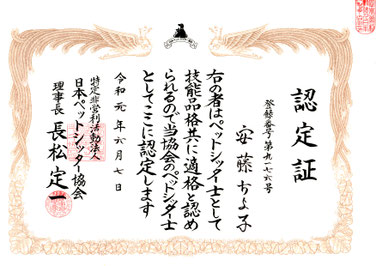 認定証
登録番号 第九一七六号
安藤ちよ子
右の者はペットシッター士として
技能品格共に適格と認め
られるので当協会のペットシッター士
としてここに認定します
令和元年六月七日
特定非営利活動法人
日本ペットシッター協会
理事長 長松定一